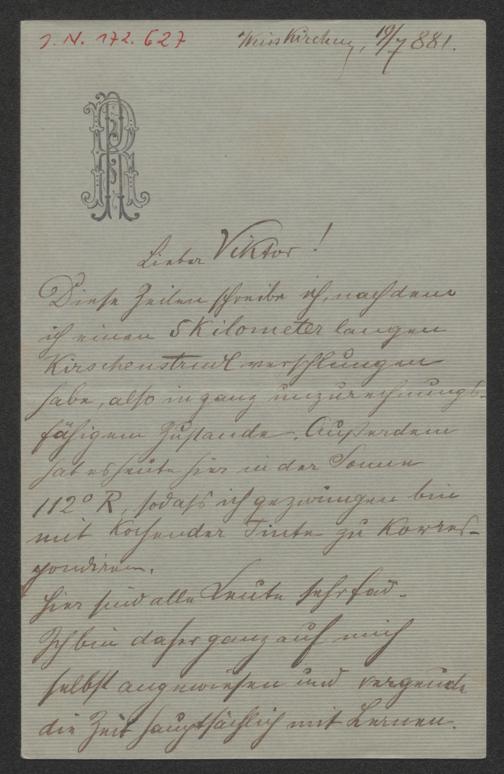 I. N. 172.627
Weisskirchen, 19/7 881.
RP
Lieber Viktor!
Diese Zeilen schreibe ich, nachdem
ich einen 5 Kilometer langen
Kirschenstrudl verschlungen
habe, also in ganz unzurechnungs-
fähigem Zustande. Außerdem
hat es heute hier in der Sonne
112° R, sodaß ich gezwungen bin
mit kochender Tinte zu korres-
pondiren.
Hier sind alle Leute sehr fad.
Ich bin daher ganz auf mich
selbst angewiesen und vergeude
die Zeit hauptsächlich mit Lernen.